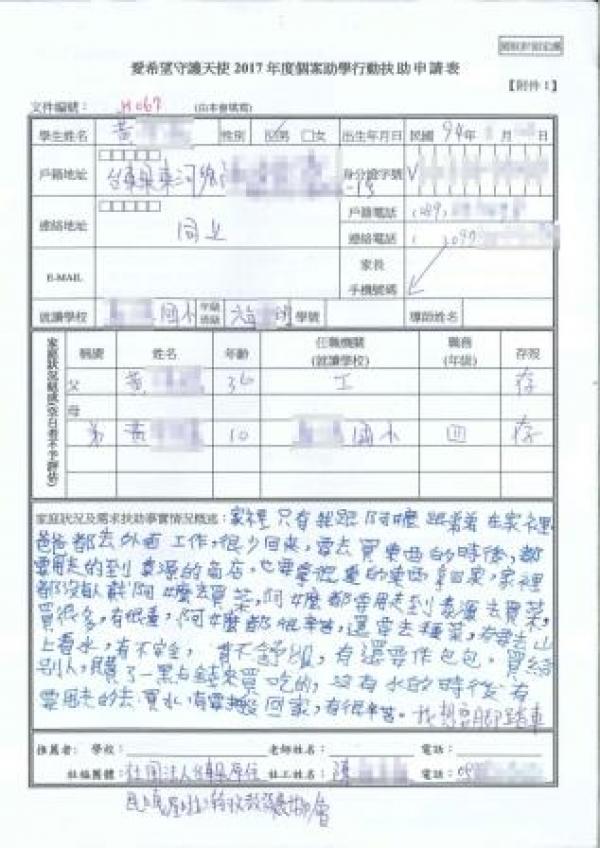 愛希望守護天使 2017 年度個案助學行動扶助申請表
【附件1】
文件編號： H067 (由本會填寫)
學生姓名 黃 性別 ☑男 □女 出生年月日 民國 94年 月
戶籍地址 台東縣東河鄉 -15 身分證字號 V
戶籍電話 (089)
連絡地址 同上 連絡電話 ( )097
E-MAIL 家長
手機號碼
就讀學校 國小 年級 班級 六 學號 導師姓名
家庭狀況組成(空白者不予評估)
稱謂 姓名 年齡 任職機關 (就讀學校) 職務 (年級) 存歿
父 黃 36 工 存
母
弟 黃 10 國小 四 存
家庭狀況及需求扶助事實情況概述：家裡只有我跟阿嬤跟弟弟在家裡
爸爸都去外面工作，很少回來，要去買東西的時後，都
要用走的到泰源的商店，也要拿很重的東西拿回家，家裡
都沒有人載阿嬤去買菜，阿嬤都要用走到泰源去買菜，
買很多，有很重，阿嬤都很辛苦，還要去種菜，有要去山
上看水，有不安全，有不舒服，有還要作包包，買給
別人，賺了一點點錢來買吃的，沒有水的時後有
要用走的去買水，有要搬回家，有很辛苦。我想要腳踏車
推薦者： 學校： 老師姓名： 電話：
社福團體： 社團法人台東縣原住 社工姓名： 陳 電話：